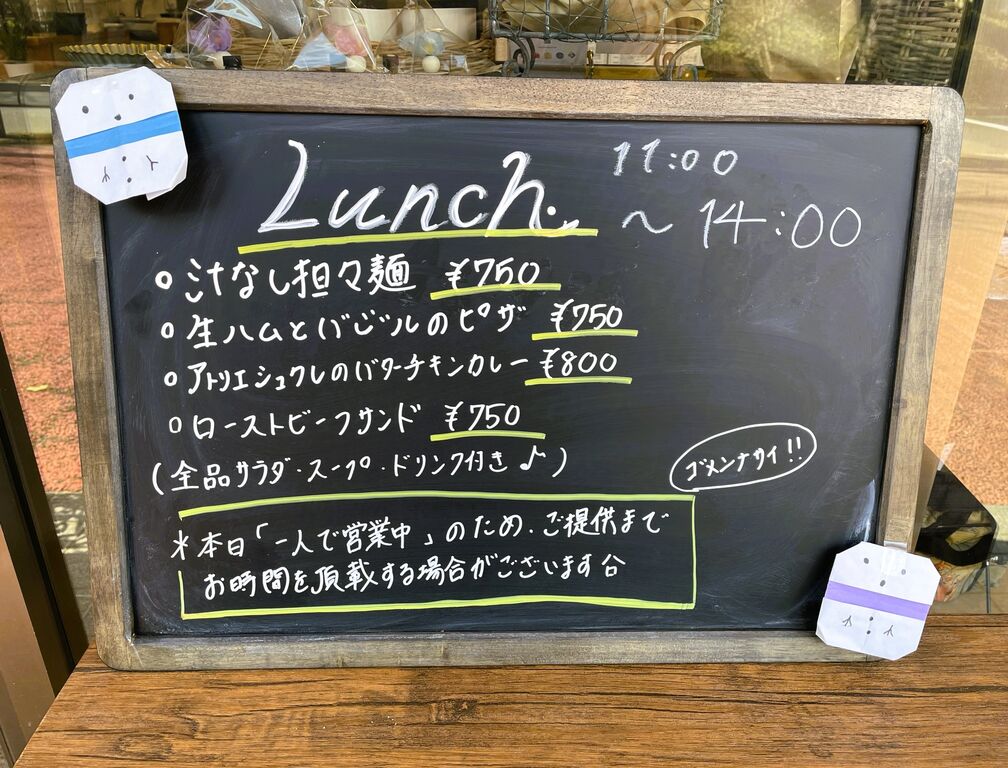 Lunch
11:00
～ 14:00
○ 汁なし担々麺 ¥750
○ 生ハムとバジルのピザ ¥750
○ アトリエシュクレのバターチキンカレー ¥800
○ ローストビーフサンド ¥750
(全品サラダ・スープ・ドリンク付き♪)
ゴメンナサイ!!
＊本日「一人で営業中」のため、ご提供まで
お時間を頂載する場合がございます